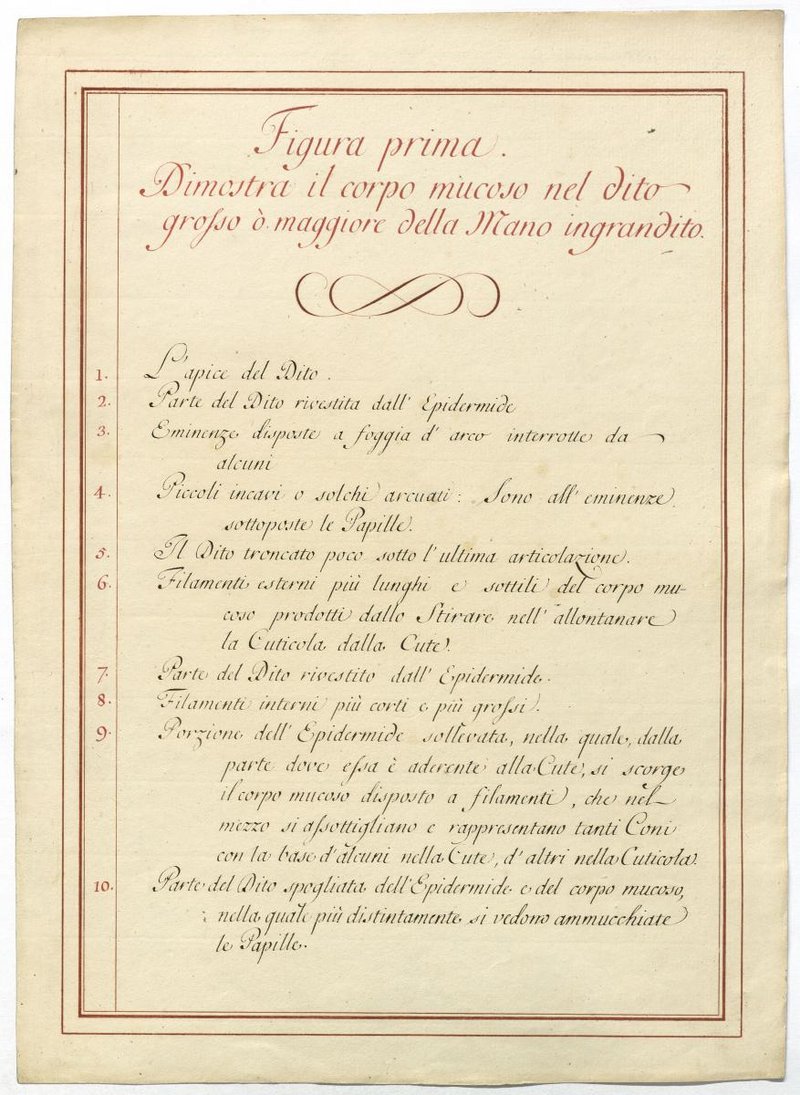 Figura prima.
Dimostra il corpo mucoso nel dito
grosso ò maggiore della Mano ingrandito.
1. L'apice del Dito.
2. Parte del Dito rivestita dall' Epidermide
3. Eminenze disposte a foggia d' arco interrotte da
alcuni
4. Piccoli incavi o solchi arcuati: Sono all' eminenze
sottoposte le Papille.
5. Il Dito troncato poco sotto l'ultima articolazione.
6. Filamenti esterni più lunghi e sottili del corpo mu-
coso prodotti dallo Stirare nell' allontanare
la Cuticola dalla Cute.
7. Parte del Dito rivestito dall' Epidermide.
8. Filamenti interni più corti e più grossi.
9. Porzione dell' Epidermide sollevata, nella quale, dalla
parte dove essa è aderente alla Cute, si scorge
il corpo mucoso disposto a filamenti, che nel
mezzo si assottigliano e rappresentano tanti Coni
con la base d'alcuni nella Cute, d'altri nella Cuticola.
10. Parte del Dito spogliata dell'Epidermide e del corpo mucoso,
nella quale più distintamente si vedono ammucchiate
le Papille.